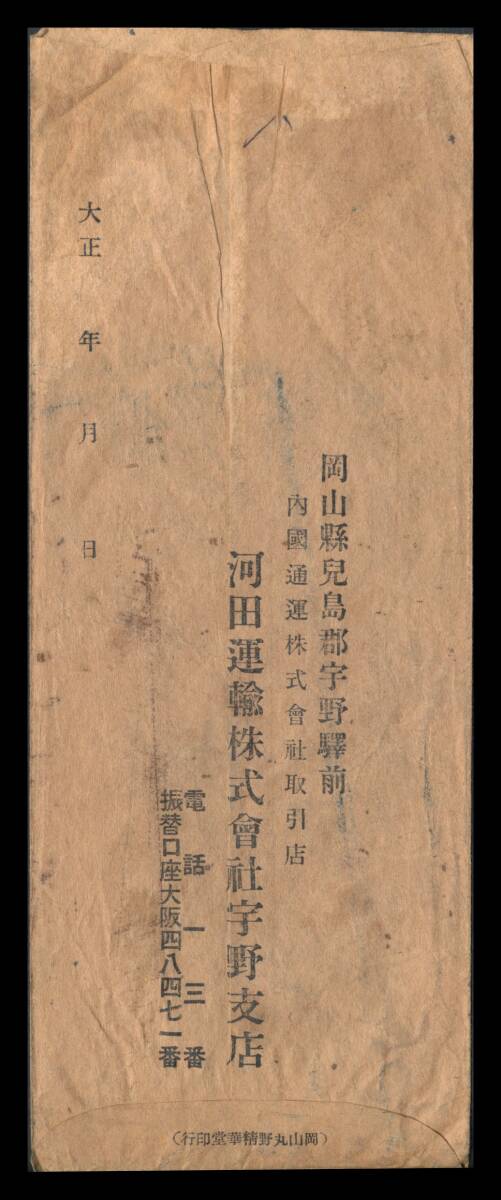 岡山縣兒島郡宇野驛前
內國通運株式會社取引店
河田運輸株式會社宇野支店
電話一三番
振替口座大阪四八四七一番
大正　年　月　日
（岡山丸野精華堂印行）